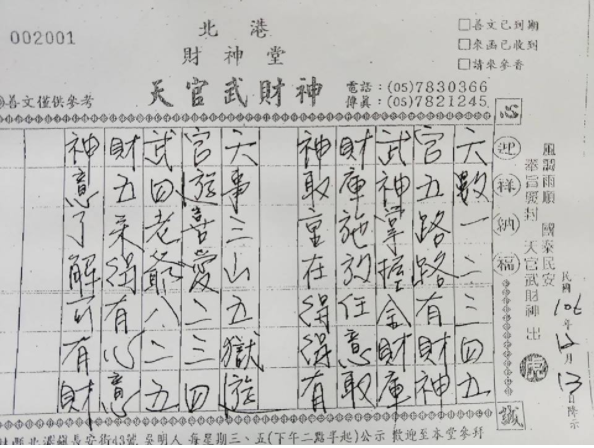 002001
北港
財神堂
天官武財神
□善文已到期
□來函已收到
□請來參香
善文僅供參考
電話:(05)7830366
傳真:(05)7821245
心
迎祥納福
誠
風調雨順 國泰民安
奉旨敕封 天官武財神 出
民國106年12月13日降示
天數一二三四五
官五路路有財神
武神掌握金財庫
財庫施放任意取
神取重在得得有
天事三山五獄遊
官遊喜愛二三四
武四老爺八二五
財五采得有心意
神意了解可有財
北港鎮長安街43號 吳明人 每星期三、五(下午二點半起)公示 歡迎至本堂參拜